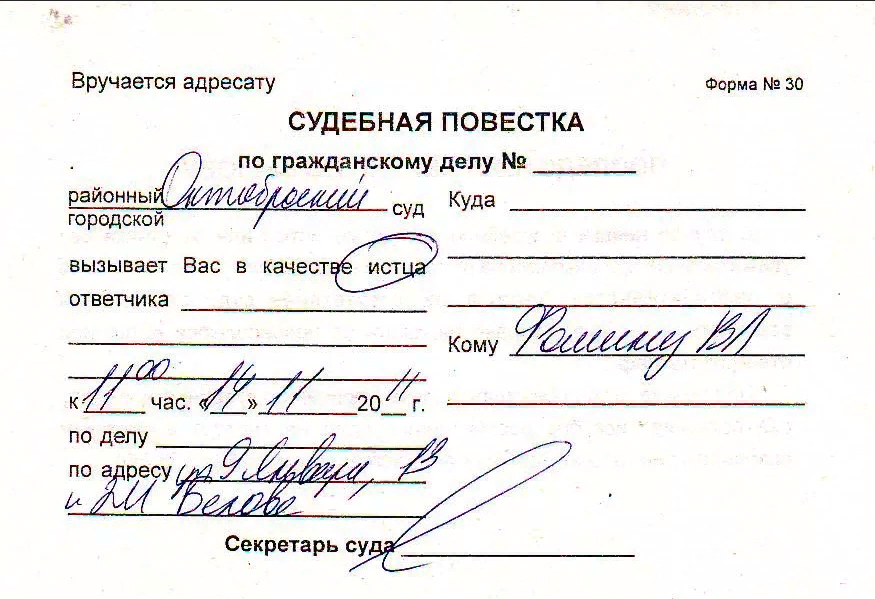 Вручается адресату
Форма № 30
СУДЕБНАЯ ПОВЕСТКА
по гражданскому делу №
районный Октябрьский суд
городской
вызывает Вас в качестве истца
ответчика
к 11 00 час. «14» 11 2011 г.
по делу
по адресу ул 9 Января, 13
Секретарь суда
Куда
Кому Фомину ВЛ